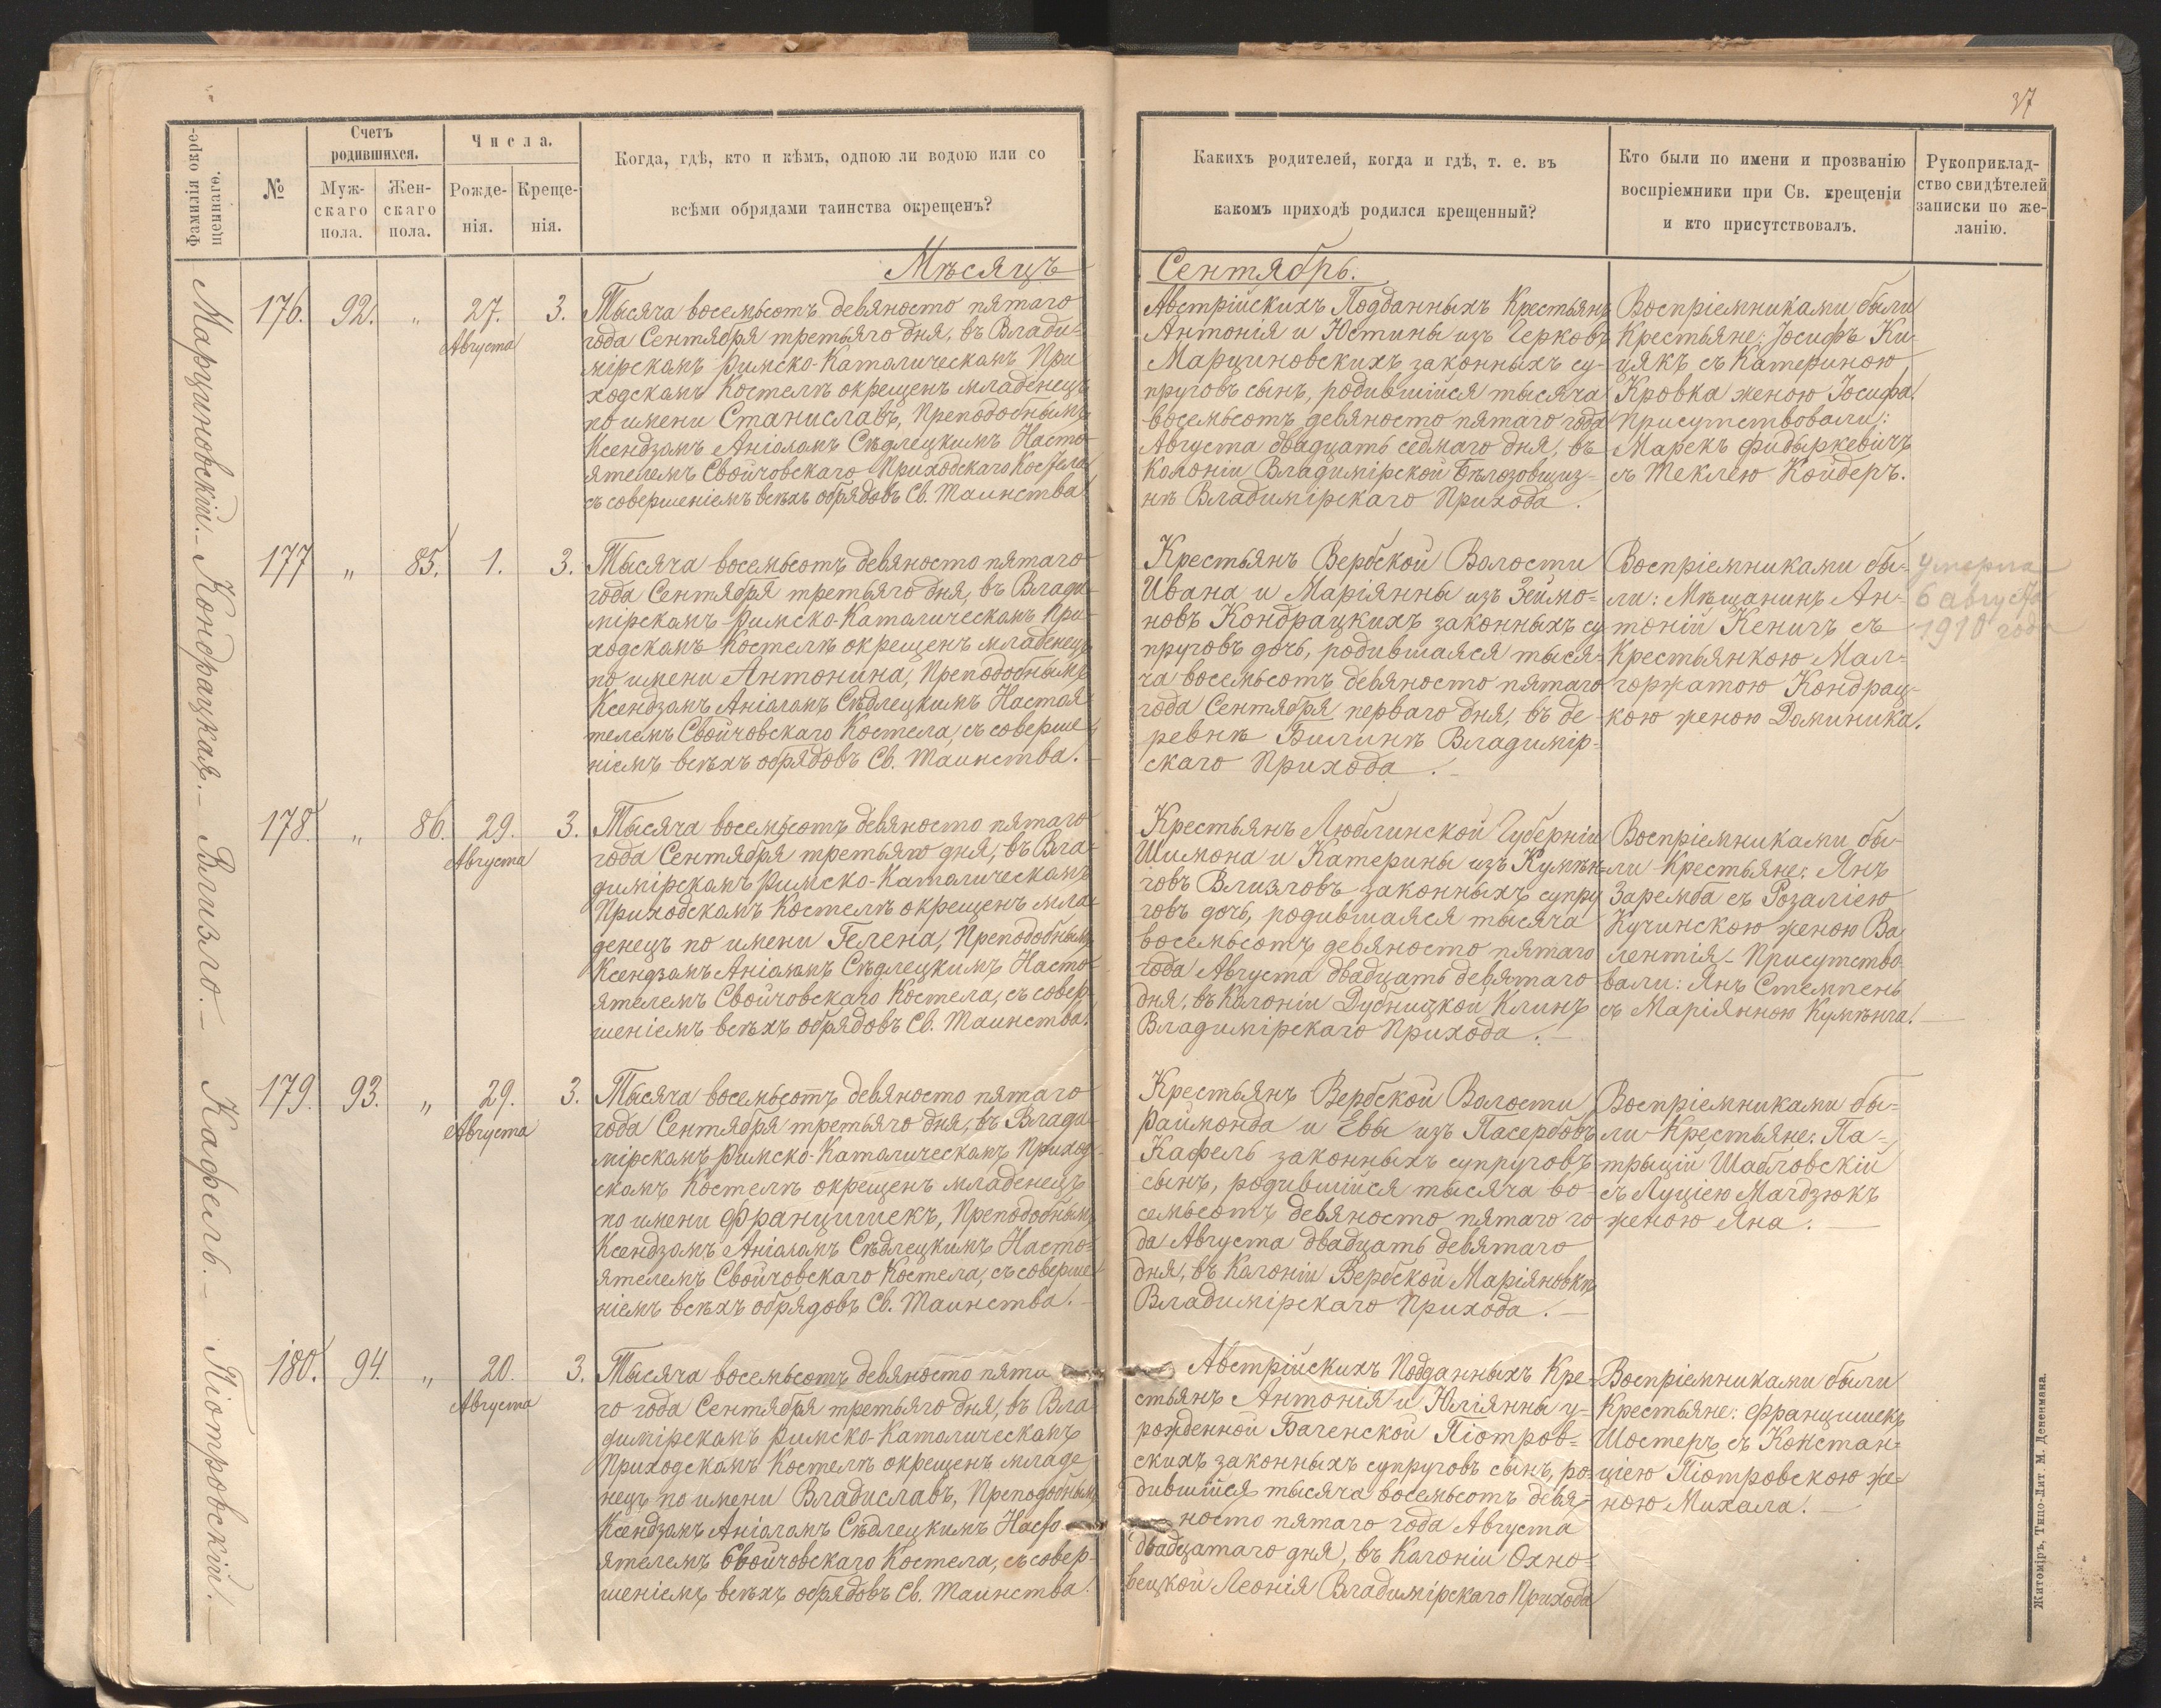 37
Фамилія окре-
щеннаго.
№
Счетъ
родившихся.
Муж-
скаго
пола.
Жен-
скаго
пола.
Числа.
Рожде-
нія.
Креще-
нія.
Когда, гдѣ, кто и кѣмъ, одною ли водою или со
всѣми обрядами таинства окрещенъ?
Какихъ родителей, когда и гдѣ, т. е. въ
какомъ приходѣ родился крещенный?
Кто были по имени и прозванію
воспріемники при Св. крещеніи
и кто присутствовалъ.
Рукоприклад-
ство свидѣтелей
записки по же-
ланію.
Мѣсяцъ
Сентябрь.
Марциновскій.
176. 92. „ 27. 3.
Августа
Тысяча восемьсотъ девяносто пятаго
года Сентября третьяго дня, въ Влади-
мірскомъ Римско-Католическомъ При
ходскомъ Костелѣ окрещенъ младенецъ
по имени Станиславъ, Преподобнымъ
Ксендзомъ Аніоломъ Сѣдлецкимъ Насто-
ятелемъ Свойчовскаго Приходскаго Костела
съ совершеніемъ всѣхъ обрядовъ Св. Таинства.
Австрійскихъ Подданныхъ Крестьянъ
Антонія и Юстины изъ Черковъ
Марциновскихъ законныхъ су-
пруговъ сынъ, родившійся тысяча
восемьсотъ девяносто пятаго года
Августа двадцать седмаго дня, въ
Колоніи Владимірской Бѣлозовщиз-
нѣ Владимірскаго Прихода.
Воспріемниками были
Крестьяне: Іосифъ Ки-
цякъ съ Катериною
Кровка женою Іосифа.
Присутствовали:
Марекъ Фидыркевичъ
съ Теклею Койдеръ.
Кондрацкая.
177 „ 85. 1. 3.
Тысяча восемьсотъ девяносто пятаго
года Сентября третьяго дня, въ Влади-
мірскомъ Римско-Католическомъ При-
ходскомъ Костелѣ окрещенъ младенецъ
по имени Антонина, Преподобнымъ
Ксендзомъ Аніоломъ Сѣдлецкимъ Настоя-
телемъ Свойчовскаго Костела, съ соверше-
ніемъ всѣхъ обрядовъ Св. Таинства.
Крестьянъ Вербской Волости
Ивана и Маріянны изъ Зеймо-
новъ Кондрацкихъ законныхъ су
пруговъ дочь, родившаяся тыся-
ча восемьсотъ девяносто пятаго
года Сентября перваго дня, въ де
ревнѣ Билинѣ Владимір-
скаго Прихода.
Воспріемниками бы-
ли: Мѣщанинъ Ан-
тоній Кеничъ съ
Крестьянкою Мал-
горжатою Кондрац-
кою женою Доминика.
умерла
6 августа
1910 года
Влизло.
178. „ 86. 29. 3.
Августа
Тысяча восемьсотъ девяносто пятаго
года Сентября третьяго дня, въ Вла-
димірскомъ Римско-Католическомъ
Приходскомъ Костелѣ окрещенъ мла-
денецъ по имени Гелена, Преподобнымъ
Ксендзомъ Аніоломъ Сѣдлецкимъ Насто-
ятелемъ Свойчовскаго Костела, съ совер-
шеніемъ всѣхъ обрядовъ Св. Таинства.
Крестьянъ Люблинской Губерніи
Шимона и Катерины изъ Кумѣн-
говъ Влизловъ законныхъ супру
говъ дочь, родившаяся тысяча
восемьсотъ девяносто пятаго
года Августа двадцать девятаго
дня, въ Колоніи Дубницкой Клинъ
Владимірскаго Прихода.
Воспріемниками бы-
ли Крестьяне: Янъ
Заремба съ Розаліею
Кучинскою женою Ва
лентія. Присутство-
вали: Янъ Стемпень
съ Маріянною Кумѣнга.
Кафель.
179. 93. „ 29. 3.
Августа
Тысяча восемьсотъ девяносто пятаго
года Сентября третьяго дня, въ Влади-
мірскомъ Римско-Католическомъ Приход-
скомъ Костелѣ окрещенъ младенецъ
по имени Францишекъ, Преподобнымъ
Ксендзомъ Аніоломъ Сѣдлецкимъ Насто-
ятелемъ Свойчовскаго Костела, съ соверше-
ніемъ всѣхъ обрядовъ Св. Таинства.
Крестьянъ Вербской Волости
Раймонда и Евы изъ Пасербовъ
Кафель законныхъ супруговъ
сынъ, родившійся тысяча во-
семьсотъ девяносто пятаго го
да Августа двадцать девятаго
дня, въ Колоніи Вербской Маріяновкѣ
Владимірскаго Прихода.
Воспріемниками бы-
ли Крестьяне: Па-
трицій Шабловскій
съ Луціею Магдзюкъ
женою Яна.
Піотровскій.
180. 94. „ 20. 3.
Августа
Тысяча восемьсотъ девяносто пята
го года Сентября третьяго дня, въ Вла
димірскомъ Римско-Католическомъ
Приходскомъ Костелѣ окрещенъ младе
нецъ по имени Владиславъ, Преподобнымъ
Ксендзомъ Аніоломъ Сѣдлецкимъ Насто
ятелемъ Свойчовскаго Костела, съ совер-
шеніемъ всѣхъ обрядовъ Св. Таинства.
Австрійскихъ Подданныхъ Кре-
стьянъ Антонія и Юліянны у-
рожденной Баченской Піотров-
скихъ законныхъ супруговъ сынъ, ро-
дившійся тысяча восемьсотъ девя-
носто пятаго года Августа
двадцатаго дня, въ Колоніи Охно-
вецкой Леонія Владимірскаго Прихода
Воспріемниками были
Крестьяне: Францишекъ
Шостеръ съ Констан-
ціею Піотровскою же-
ною Михала.
Житоміръ, Типо-Лит М. Дененмана.